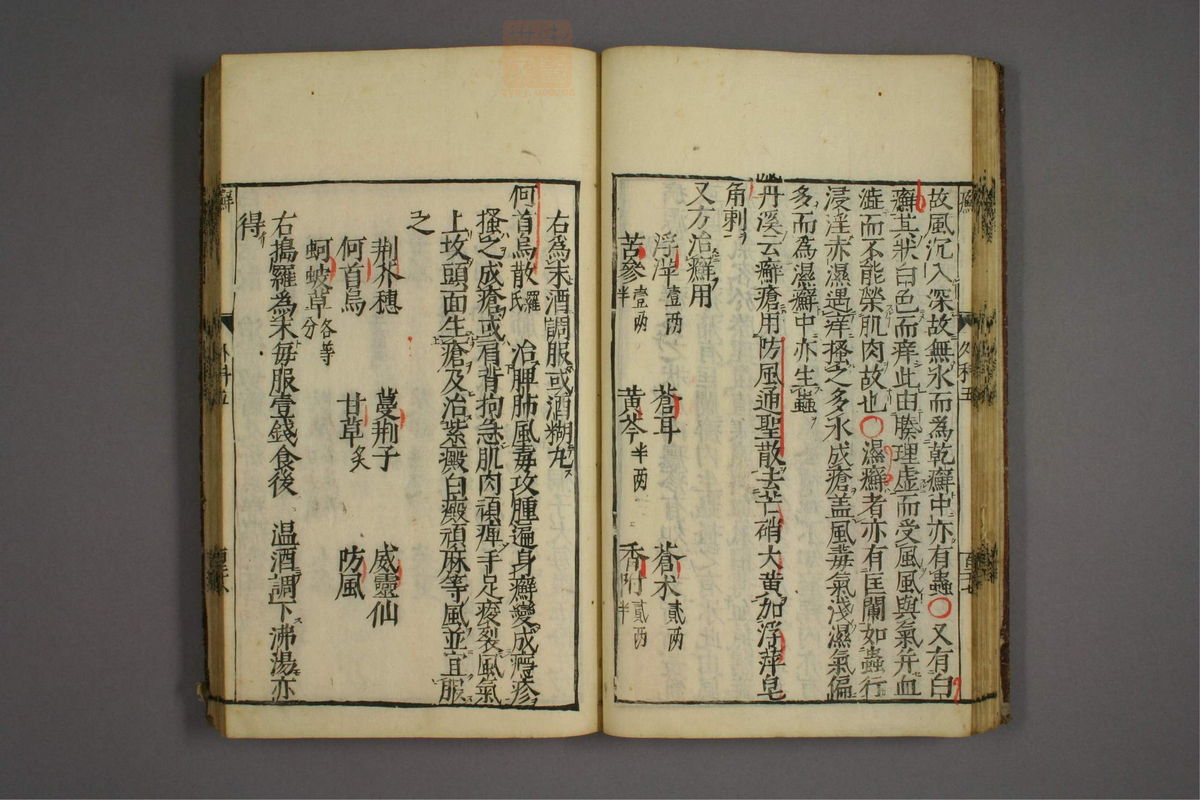 故風沉入深故無水而為乾癬中亦有蟲○又有白
癬其狀白色而痒此由腠理虛而受風風與氣并血
澁而不能榮肌肉故也○濕癬者亦有匡闌如蟲行
浸淫赤濕遇痒搔之多水成瘡盖風毒氣淺濕氣偏
多而為濕癬中亦生蟲
丹溪云癬瘡用防風通聖散去芒硝大黃加浮萍皂
角刺
又方治癬用
浮萍壹两 蒼耳 蒼朮貳两
苦參半 黃芩半两 香附半貳两
右為末酒調服或酒糊丸
何首烏散羅氏 治脾肺風毒攻腫遍身癬變成癮疹
搔之成瘡或肩背拘急肌肉頑痺手足痠裂風氣
上攻頭面生瘡及治紫癜白癜頑麻等風並宜服
之
荆芥穗 蔓荆子 威靈仙
何首烏 甘草炙 防風
蚵蚾草各等分
右搗羅為末每服壹錢食後 温酒調下沸湯亦
得